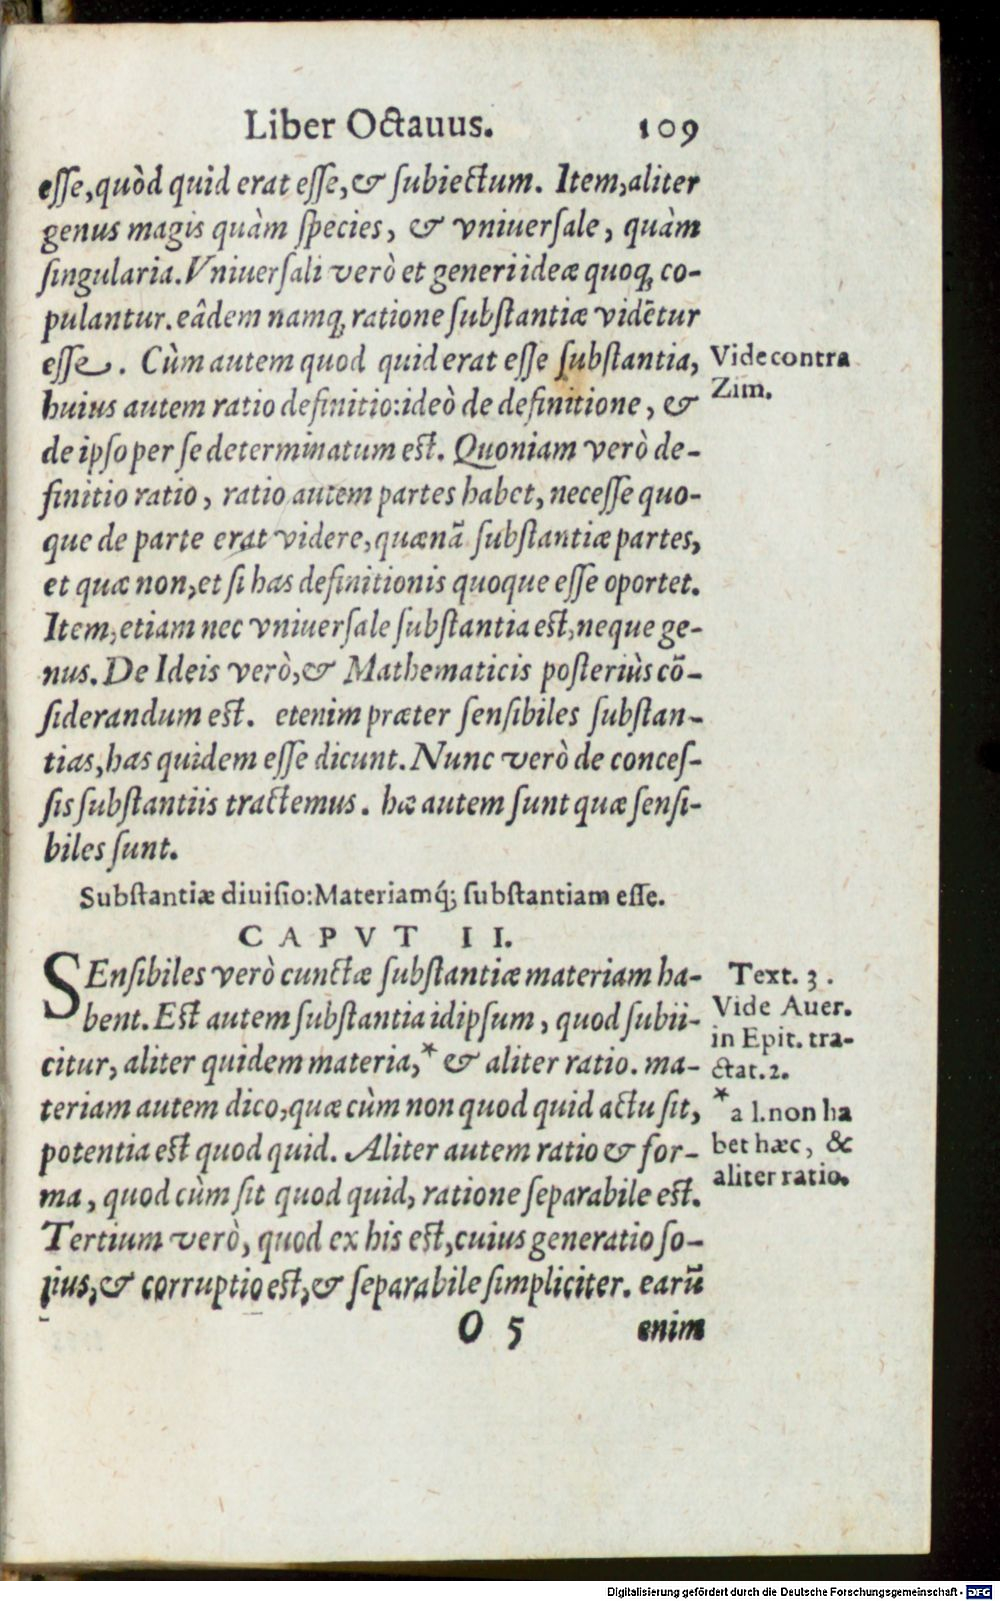 Liber Octauus. 109
esse, quòd quid erat esse, & subiectum. Item, aliter
genus magis quàm species, & vniuersale, quàm
singularia. Vniuersali verò et generi ideæ quoq; co-
pulantur. eâdem namq; ratione substantiæ vidẽtur
esse. Cùm autem quod quid erat esse substantia,
huius autem ratio definitio: ideò de definitione, &
de ipso per se determinatum est. Quoniam verò de-
finitio ratio, ratio autem partes habet, necesse quo-
que de parte erat videre, quænã substantiæ partes,
et quæ non, et si has definitionis quoque esse oportet.
Item, etiam nec vniuersale substantia est, neque ge-
nus. De Ideis verò, & Mathematicis posteriùs cõ-
siderandum est. etenim præter sensibiles substan-
tias, has quidem esse dicunt. Nunc verò de conces-
sis substantiis tractemus. hæ autem sunt quæ sensi-
biles sunt.
Vide contra
Zim.
Substantiæ diuisio: Materiamq́; substantiam esse.
CAPVT II.
SEnsibiles verò cunctæ substantiæ materiam ha-
bent. Est autem substantia idipsum, quod subii-
citur, aliter quidem materia,* & aliter ratio. ma-
teriam autem dico, quæ cùm non quod quid actu sit,
potentia est quod quid. Aliter autem ratio & for-
ma, quod cùm sit quod quid, ratione separabile est.
Tertium verò, quod ex his est, cuius generatio so-
lius, & corruptio est, & separabile simpliciter. earũ
Text. 3.
Vide Auer.
in Epit. tra-
ctat. 2.
*a l. non ha
bet hæc, &
aliter ratio.
O 5 enim
Digitalisierung gefördert durch die Deutsche Forschungsgemeinschaft - DFG